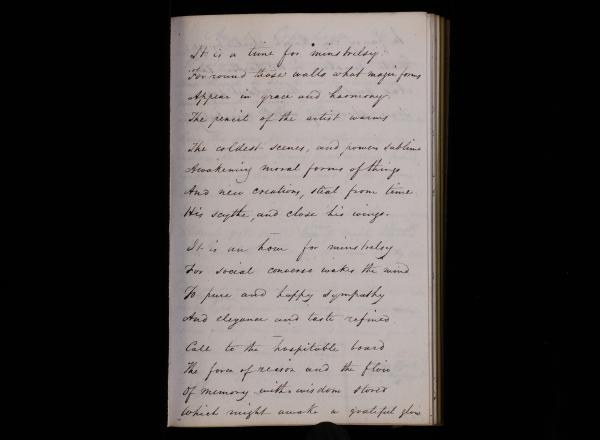 It is a time for minstrelsy
For round those walls what magic forms
Appear in grace and harmony.
The pencil of the artist warms
The coldest scenes, and powers sublime
Awakening moral forms of things
And new creations, steal from time
His scythe, and close his wings.
It is an hour for minstrelsy
For social converse wakes the mind
To pure and happy sympathy
And elegance and taste refined.
Call to the hospitable board
The force of reason and the flow
Of memory with wisdom stored
Which might awake a grateful glow